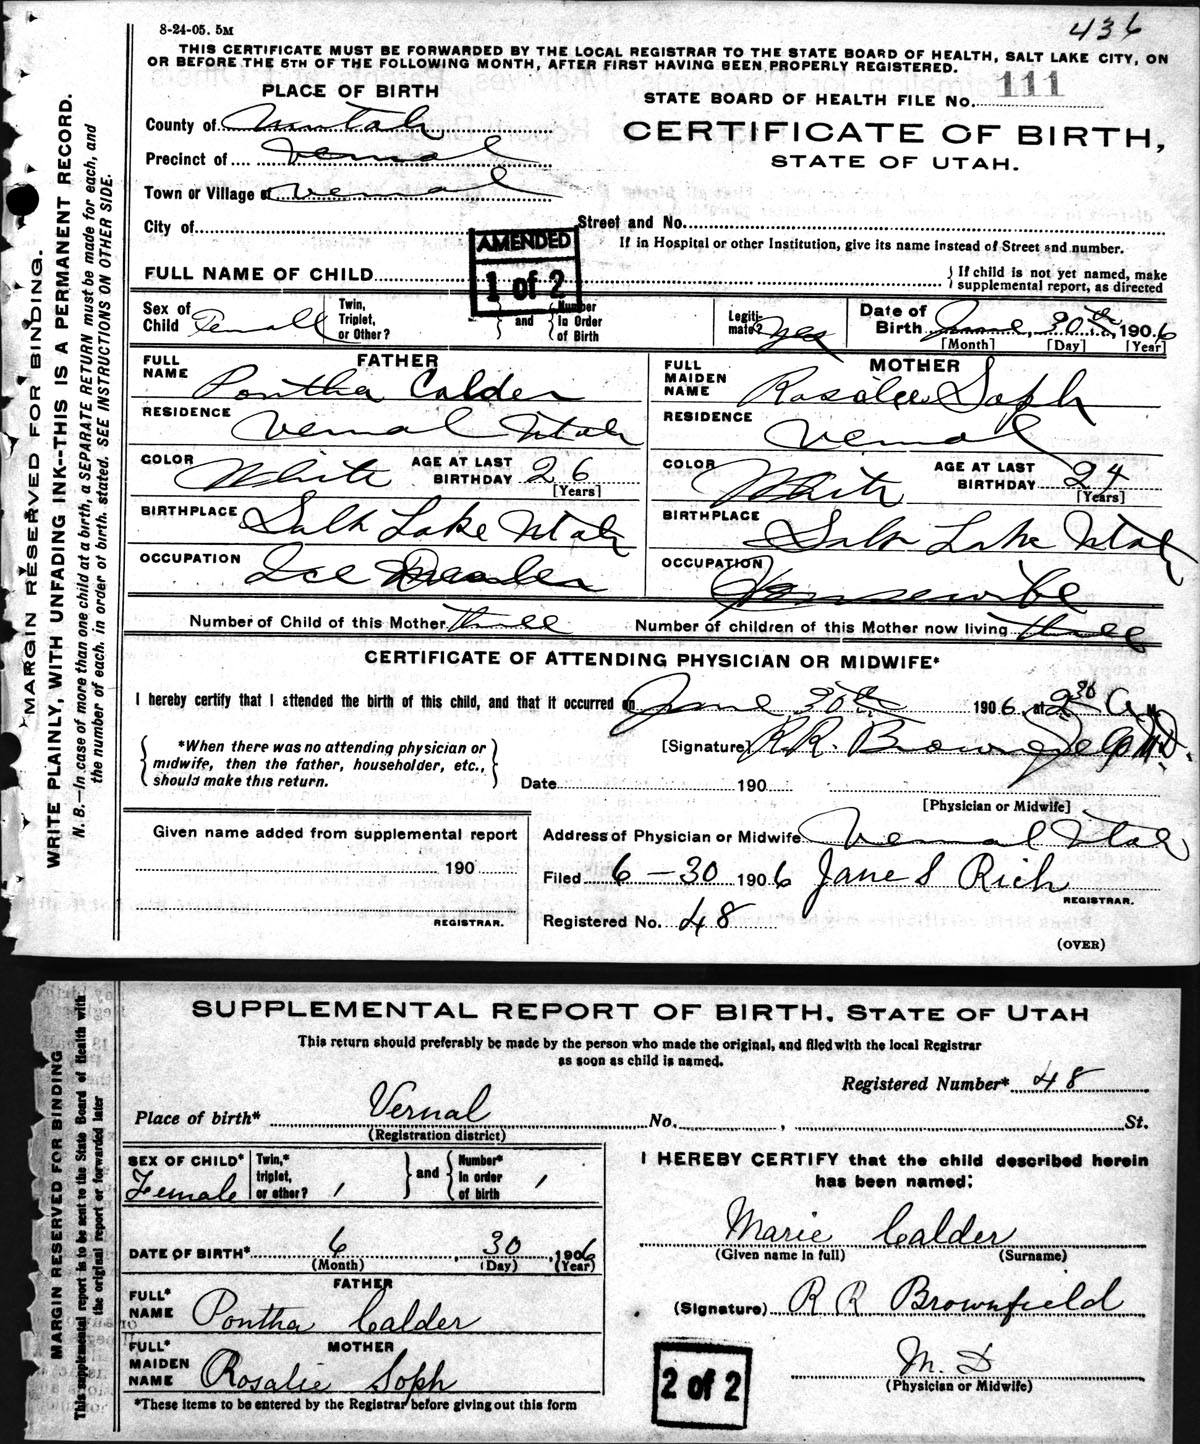 8-24-05. 5M
436
THIS CERTIFICATE MUST BE FORWARDED BY THE LOCAL REGISTRAR TO THE STATE BOARD OF HEALTH, SALT LAKE CITY, ON
OR BEFORE THE 5TH OF THE FOLLOWING MONTH, AFTER FIRST HAVING BEEN PROPERLY REGISTERED.
MARGIN RESERVED FOR BINDING.
WRITE PLAINLY, WITH UNFADING INK--THIS IS A PERMANENT RECORD.
N. B.—In case of more than one child at a birth, a SEPARATE RETURN must be made for each, and
the number of each, in order of birth, stated. SEE INSTRUCTIONS ON OTHER SIDE.
PLACE OF BIRTH
STATE BOARD OF HEALTH FILE No. 111
County of Uintah
CERTIFICATE OF BIRTH,
Precinct of Vernal
STATE OF UTAH.
Town or Village of Vernal
City of
Street and No.
AMENDED
1 of 2
If in Hospital or other Institution, give its name instead of Street and number.
FULL NAME OF CHILD
} If child is not yet named, make
supplemental report, as directed
Sex of Child Female
Twin, Triplet, or Other?
} and {
Number In Order of Birth
Legiti-mate? Yes
Date of Birth June, 30th, 1906
[Month] [Day] [Year]
FATHER
MOTHER
FULL NAME Pontha Calder
FULL MAIDEN NAME Rosalie Soph
RESIDENCE Vernal Utah
RESIDENCE Vernal
COLOR White AGE AT LAST BIRTHDAY 26 [Years]
COLOR White AGE AT LAST BIRTHDAY 24 [Years]
BIRTHPLACE Salt Lake Utah
BIRTHPLACE Salt Lake Utah
OCCUPATION Ice Dealer
OCCUPATION Housewife
Number of Child of this Mother three
Number of children of this Mother now living three
CERTIFICATE OF ATTENDING PHYSICIAN OR MIDWIFE*
I hereby certify that I attended the birth of this child, and that it occurred on June 30th 1906, at 2 30 A M
{ *When there was no attending physician or
midwife, then the father, householder, etc.,
should make this return. }
[Signature] R.R. Brownfield M.D.
Date 190
[Physician or Midwife]
Given name added from supplemental report
190
REGISTRAR.
Address of Physician or Midwife Vernal Utah
Filed 6-30 1906 Jane S Rich
REGISTRAR.
Registered No. 48
(OVER)
SUPPLEMENTAL REPORT OF BIRTH, STATE OF UTAH
This return should preferably be made by the person who made the original, and filed with the local Registrar
as soon as child is named.
MARGIN RESERVED FOR BINDING
This supplemental report is to be sent to the State Board of Health with
the original report or forwarded later
Registered Number* 48
Place of birth* Vernal No. , St.
(Registration district)
SEX OF CHILD* Female
Twin,* triplet, or other? 1
} and {
Number* In order of birth 1
I HEREBY CERTIFY that the child described herein
has been named:
Marie Calder
(Given name in full) (Surname)
DATE OF BIRTH* 6, 30, 1906
(Month) (Day) (Year)
FATHER
FULL* NAME Pontha Calder
(Signature) R R Brownfield
MOTHER
FULL* MAIDEN NAME Rosalie Soph
M.D
(Physician or Midwife)
2 of 2
*These items to be entered by the Registrar before giving out this form